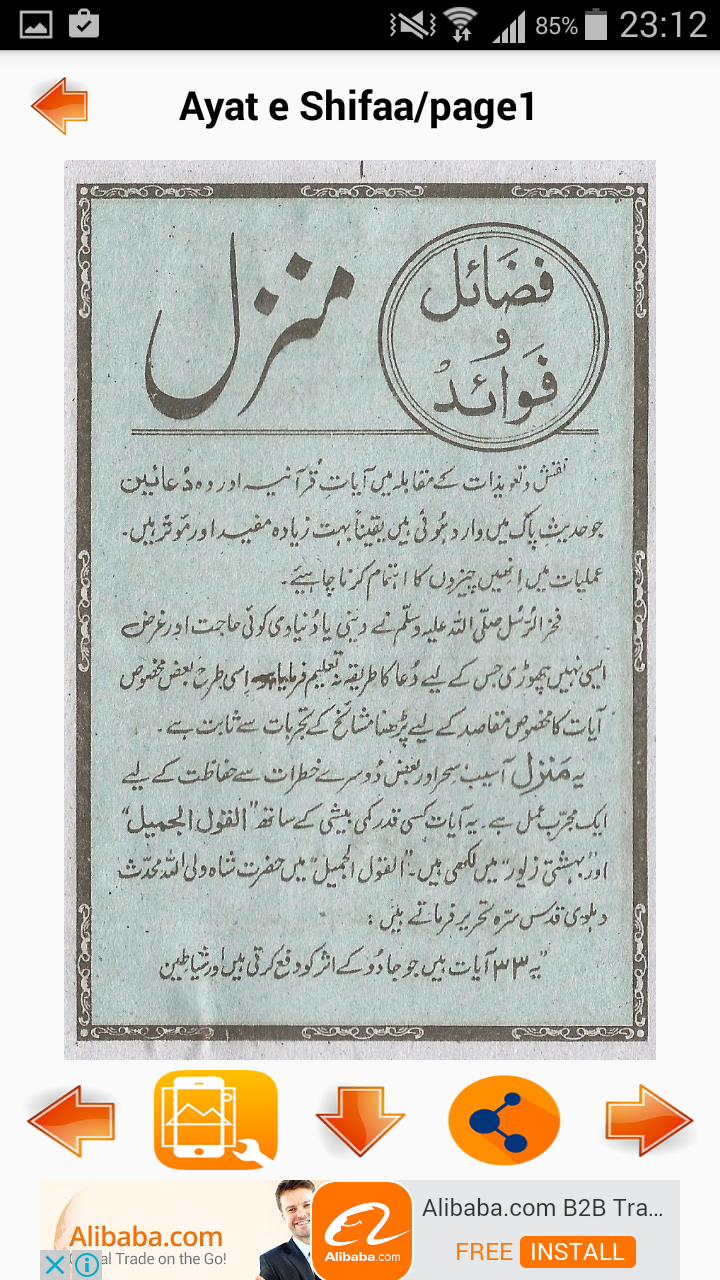 85% 23:12
Ayat e Shifaa/page1
منزل
فضَائل
و
فوَائد
نقش و تعویذات کے مقابلہ میں آیاتِ قُرآنیہ اور وہ دُعائیں
جو حدیثِ پاک میں وارد ہُوئی ہیں یقیناً بہت زیادہ مفید اور مؤثر ہیں۔
عملیات میں انھیں چیزوں کا اہتمام کرنا چاہیئے۔
فخر الرّسُل صلّی اللہ علیہ وسلّم نے دینی یا دُنیاوی کوئی حاجت اور غرض
ایسی نہیں چھوڑی جس کے لیے دُعا کا طریقہ نہ تعلیم فرمایا ہو اِسی طرح بعض مخصوص
آیات کا مخصوص مقاصد کے لیے پڑھنا مشائخ کے تجربات سے ثابت ہے۔
یہ مَنزل آسیب سِحر اور بعض دُوسرے خطرات سے حفاظت کے لیے
ایک مجرّب عمل ہے۔ یہ آیات کِسی قدر کمی بیشی کے ساتھ "القول الجمیل"
اور "بہشتی زیور" میں لکھی ہیں۔ "القول الجمیل" میں حضرت شاہ ولی اللہ محدّث
دہلوی قدس سرّہ تحریر فرماتے ہیں:
"یہ ۳۳ آیات ہیں جو جادُو کے اثر کو دفع کرتی ہیں اور شیاطین
Alibaba.com
al Trade on the Go!
Alibaba.com
Alibaba.com B2B Tra...
FREE INSTALL